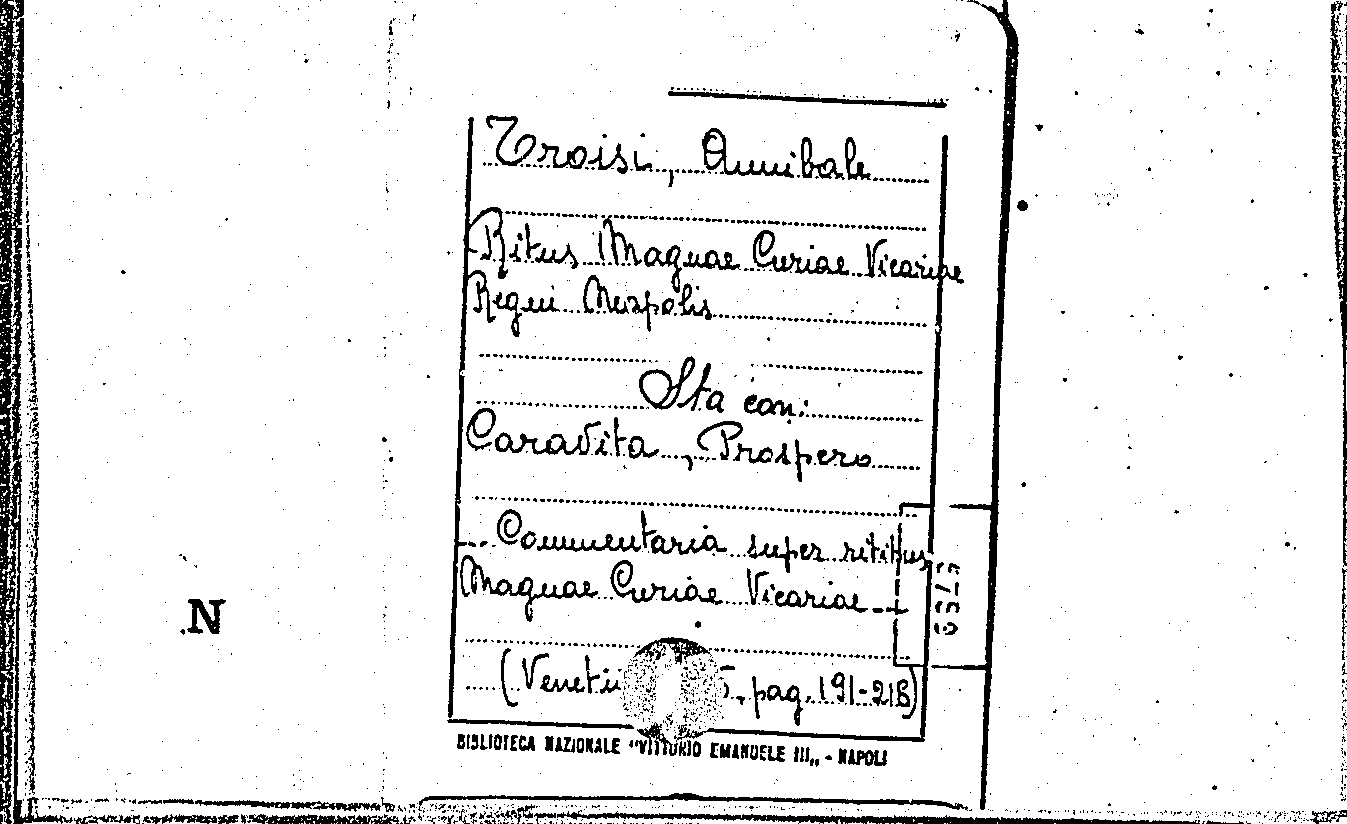 Troisi, Annibale
Ritus Magnae Curiae Vicariae
Regni Neapolis
Sta con:
Caravita, Prospero
Commentaria super ritibus
Magnae Curiae Vicariae
N
(Veneti , pag. 191-218)
BIBLIOTECA NAZIONALE "VITTORIO EMANUELE III„ - NAPOLI